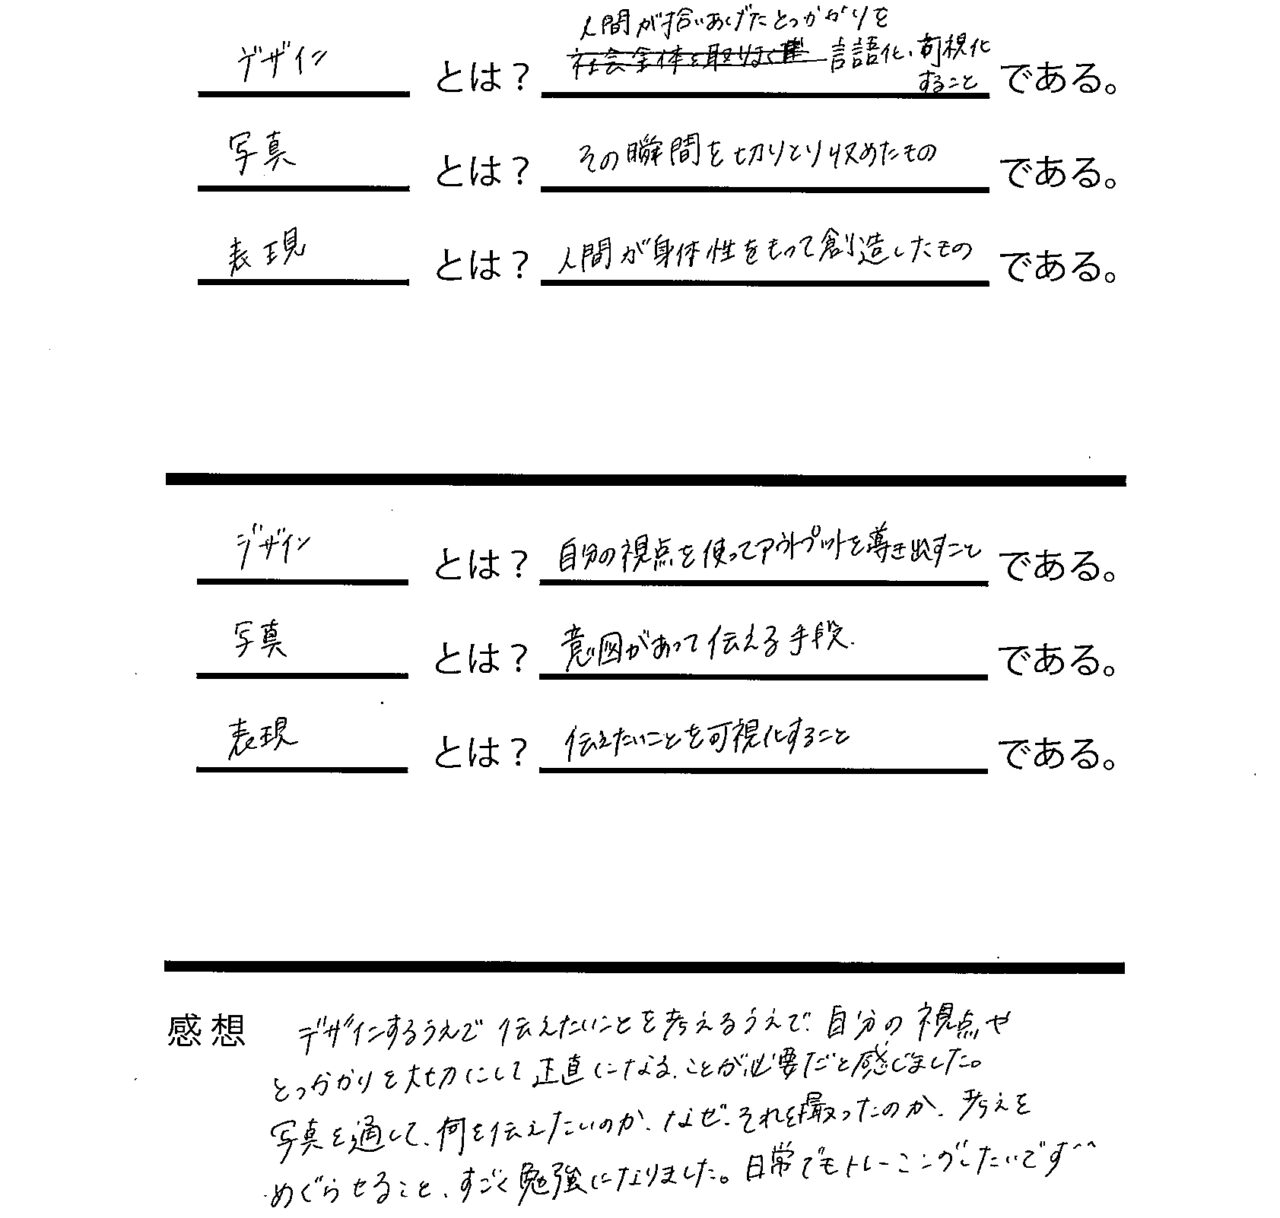 人間が拾いあげたとっかかりを
デザイン とは? 社会全体を取りまく 言語化、可視化
すること である。
写真 とは? その瞬間を切りとり収めたもの である。
表現 とは? 人間が身体性をもって創造したもの である。
デザイン とは? 自分の視点を使ってアウトプットを導き出すこと である。
写真 とは? 意図があって伝える手段. である。
表現 とは? 伝えたいことを可視化すること である。
感想 デザインするうえで伝えたいことを考えるうえで、自分の視点や
とっかかりを大切にして正直になる、ことが必要だと感じました。
写真を通して、何を伝えたいのか、なぜ、それを撮ったのか、考えを
めぐらせること、すごく勉強になりました。日常でもトレーニングしたいです^^